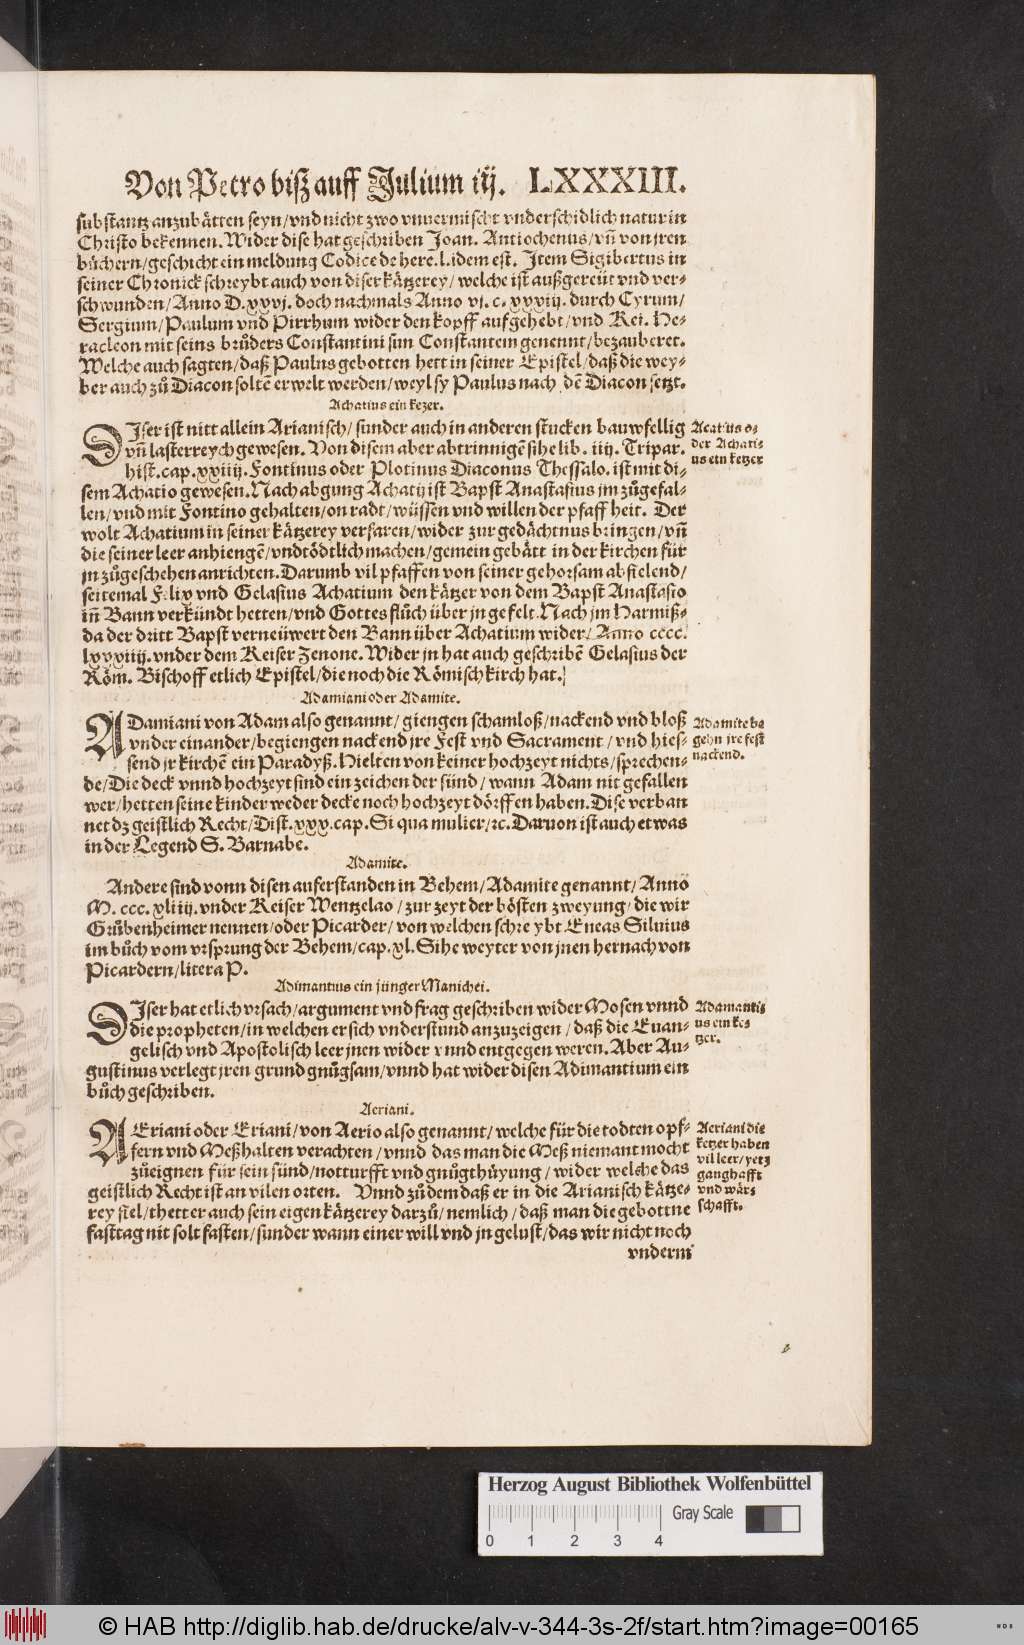 Von Petro biß auff Julium iij. LXXXIII.
substantz anzubätten seyn/vnd nicht zwo vnuermischt vnderschidlich natur in
Christo bekennen. Wider dise hat geschriben Joan. Antiochenus/vñ von jren
büchern/geschicht ein meldung Codice de here. l. idem est. Item Sigibertus in
seiner Chronick schreybt auch von diser kätzerey/welche ist außgereüt vnd ver-
schwunden/Anno D.xxvj. doch nachmals Anno vj. c. xxxiij. durch Cyrum/
Sergium/Paulum vnd Pirrhum wider den kopff auffgehebt/vnd Kei. He-
racleon mit seins brůders Constantini sun Constantem genennt/bezauberet.
Welche auch sagten/daß Paulus gebotten hett in seiner Epistel/daß die wey-
ber auch zů Diacon soltē erwelt werden/weyl sy Paulus nach dē Diacon setzt.
Achatius ein kezer.
DIser ist nitt allein Arianisch/sunder auch in anderen stucken bauwfellig
vñ lasterreych gewesen. Von disem aber abtrinnigē sihe lib. iiij. Tripar.
hist. cap. xxiiij. Fontinus oder Plotinus Diaconus Thessalo. ist mit di-
sem Achatio gewesen. Nach abgung Achatij ist Bapst Anastasius jm zůgefal-
len/vnd mit Fontino gehalten/on radt/wüssen vnd willen der pfaffheit. Der
wolt Achatium in seiner kätzerey verfaren/wider zur gedächtnus bringen/vñ
die seiner leer anhiengē/vndtödtlich machen/gemein gebätt in der kirchen für
jn zůgeschehen anrichten. Darumb vil pfaffen von seiner gehorsam abfielend/
seitemal Felix vnd Gelasius Achatium den kätzer von dem Bapst Anastasio
in Bann verkündt hetten/vnd Gottes flůch über jn gefelt. Nach jm Harmiß-
da der dritt Bapst verneüwert den Bann über Achatium wider/Anno cccc.
lxxxiiij. vnder dem Keiser Zenone. Wider jn hat auch geschribē Gelasius der
Röm. Bischoff etlich Epistel/die noch die Römisch kirch hat.
Adamiani oder Adamite.
ADamiani von Adam also genannt/giengen schamloß/nackend vnd bloß
vnder einander/begiengen nackend jre Fest vnd Sacrament/vnd hies-
send jr kirchē ein Paradyß. Hielten von keiner hochzeyt nichts/sprechen-
de/Die deck vnnd hochzeyt sind ein zeichen der sünd/wann Adam nit gefallen
wer/hetten seine kinder weder decke noch hochzeyt dörffen haben. Dise verban
net dz geistlich Recht/Dist. xxx. cap. Si qua mulier/rc. Daruon ist auch etwas
in der Legend S. Barnabe.
Adamite.
Andere sind vonn disen auferstanden in Behem/Adamite genannt/Anno
M. ccc. xliiij. vnder Keiser Wentzelao/zur zeyt der bösten zweyung/die wir
Grůbenheimer nennen/oder Picarder/von welchen schreybt Eneas Siluius
im bůch vom vrsprung der Behem/cap. xl. Sihe weyter von jnen hernach von
Picardern/litera P.
Adimantius ein jünger Manichei.
DIser hat etlich vrsach/argument vnd frag geschriben wider Mosen vnnd
die propheten/in welchen er sich vnderstund anzuzeigen/daß die Euan-
gelisch vnd Apostolisch leer jnen wider vnnd entgegen weren. Aber Au-
gustinus verlegt jren grund gnůgsam/vnnd hat wider disen Adimantium ein
bůch geschriben.
Aeriani.
AEriani oder Eriani/von Aerio also genannt/welche für die todten opf-
fern vnd Meßhalten verachten/vnnd das man die Meß niemant mocht
zůeignen für sein sünd/notturfft vnd gnůgthüyung/wider welche das
geistlich Recht ist an vilen orten. Vnnd zůdem daß er in die Arianisch kätze-
rey fiel/thett er auch sein eigen kätzerey darzů/nemlich/daß man die gebottne
fasttag nit solt fasten/sunder wann einer will vnd jn gelust/das wir nicht noch
vnderm
Acatius o-
der Achati-
us ein ketzer
Adamite be
gehn jre fest
nackend.
Adamanti-
us ein ke-
tzer.
Aeriani die
ketzer haben
vil leer/yetz
ganghafft
vnd wär-
schafft.
Herzog August Bibliothek Wolfenbüttel
Gray Scale
0 1 2 3 4
© HAB http://diglib.hab.de/drucke/alv-v-344-3s-2f/start.htm?image=00165